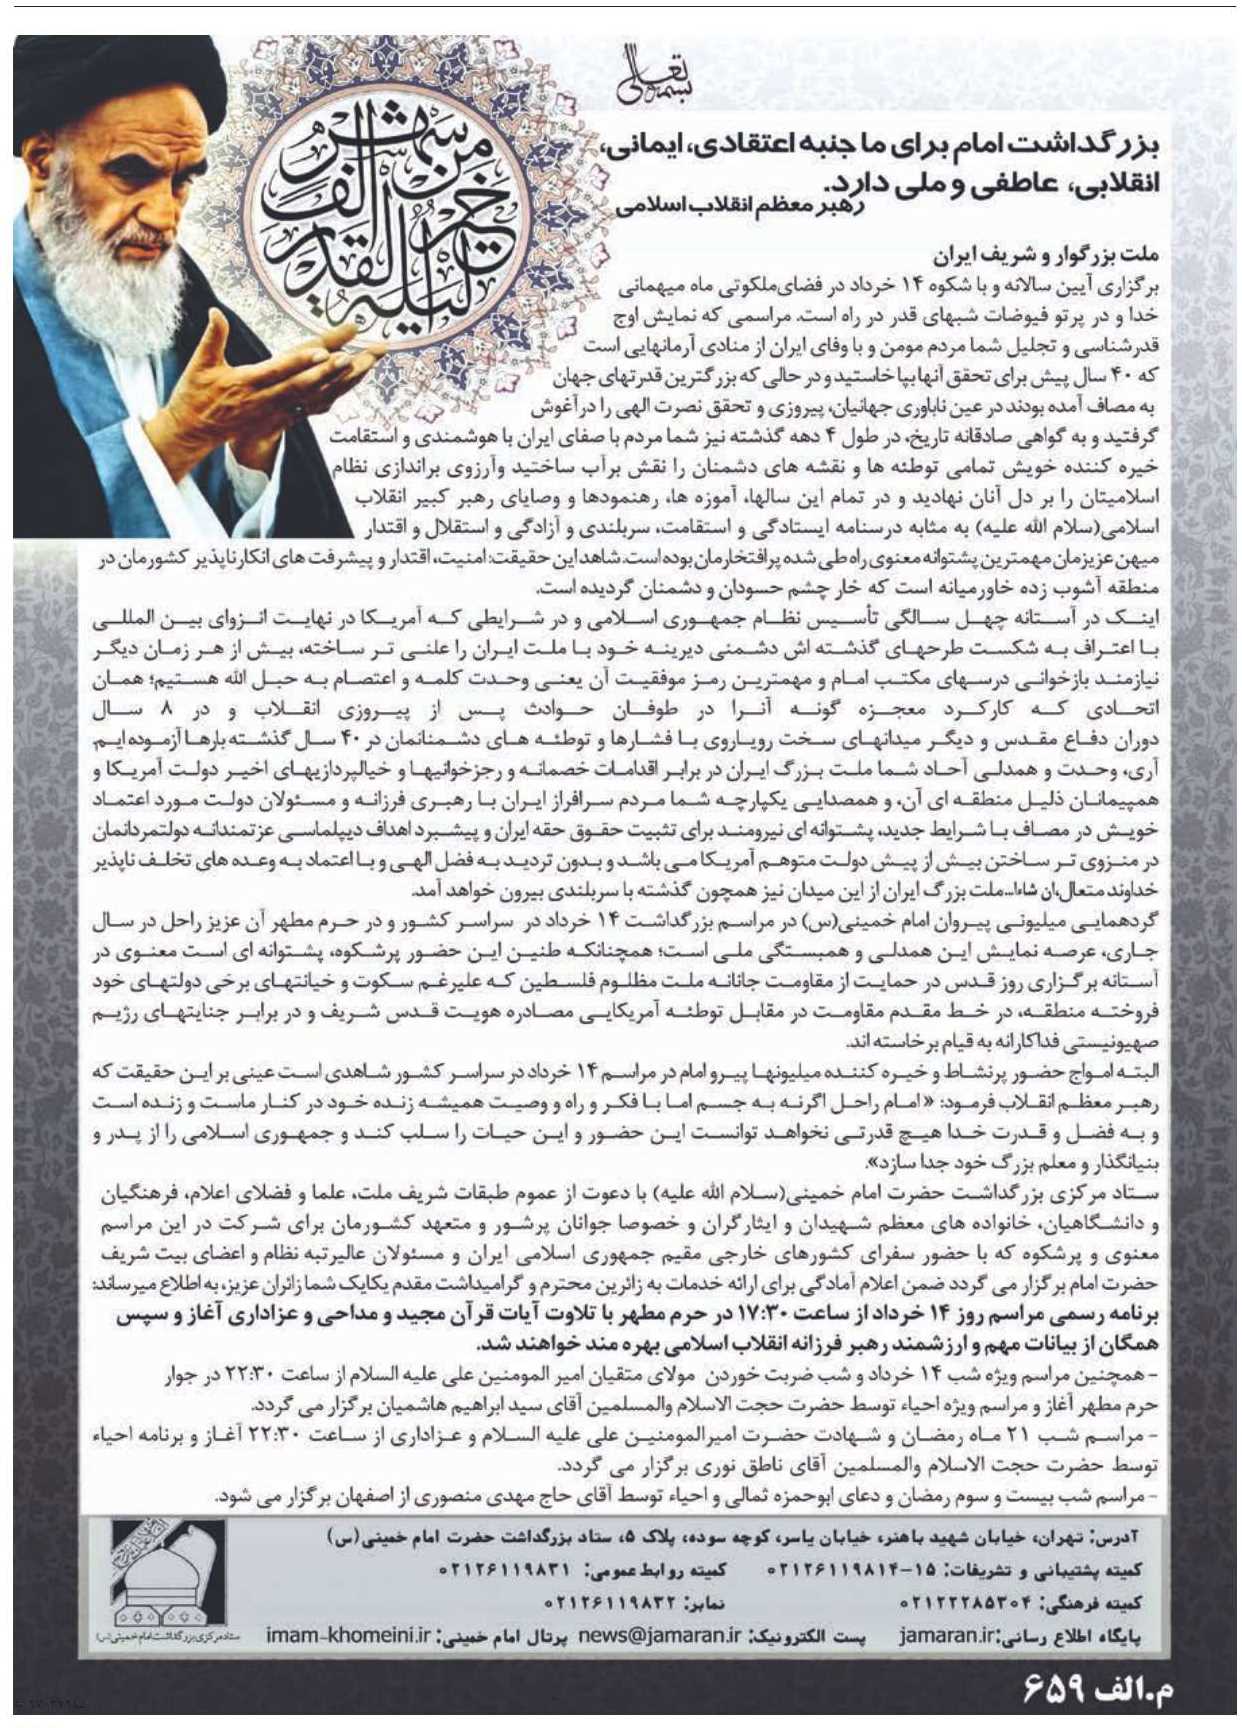 بسمه تعالی
لیلة القدر خیر من الف شهر
بزرگداشت امام برای ما جنبه اعتقادی، ایمانی،
انقلابی، عاطفی و ملی دارد.
رهبر معظم انقلاب اسلامی
ملت بزرگوار و شریف ایران
برگزاری آیین سالانه و با شکوه ۱۴ خرداد در فضای‌ملکوتی ماه میهمانی
خدا و در پرتو فیوضات شبهای قدر در راه است. مراسمی که نمایش اوج
قدرشناسی و تجلیل شما مردم مومن و با وفای ایران از منادی آرمانهایی است
که ۴۰ سال پیش برای تحقق آنهابپا خاستید و در حالی که بزرگترین قدرتهای جهان
به مصاف آمده بودند در عین ناباوری جهانیان، پیروزی و تحقق نصرت الهی را درآغوش
گرفتید و به گواهی صادقانه تاریخ، در طول ۴ دهه گذشته نیز شما مردم با صفای ایران با هوشمندی و استقامت
خیره کننده خویش تمامی توطئه ها و نقشه های دشمنان را نقش برآب ساختید وآرزوی براندازی نظام
اسلامیتان را بر دل آنان نهادید و در تمام این سالها، آموزه ها، رهنمودها و وصایای رهبر کبیر انقلاب
اسلامی(سلام الله علیه) به مثابه درسنامه ایستادگی و استقامت، سربلندی و آزادگی و استقلال و اقتدار
میهن عزیزمان مهمترین پشتوانه معنوی راه طی شده پرافتخارمان بوده است. شاهد این حقیقت: امنیت، اقتدار و پیشرفت های انکارناپذیر کشورمان در
منطقه آشوب زده خاورمیانه است که خار چشم حسودان و دشمنان گردیده است.
اینک در آستانه چهل سالگی تأسیس نظام جمهوری اسلامی و در شرایطی که آمریکا در نهایت انزوای بین المللی
با اعتراف به شکست طرحهای گذشته اش دشمنی دیرینه خود با ملت ایران را علنی تر ساخته، بیش از هر زمان دیگر
نیازمند بازخوانی درسهای مکتب امام و مهمترین رمز موفقیت آن یعنی وحدت کلمه و اعتصام به حبل الله هستیم؛ همان
اتحادی که کارکرد معجزه گونه آنرا در طوفان حوادث پس از پیروزی انقلاب و در ۸ سال
دوران دفاع مقدس و دیگر میدانهای سخت رویاروی با فشارها و توطئه های دشمنانمان در ۴۰ سال گذشته بارها آزموده ایم.
آری، وحدت و همدلی آحاد شما ملت بزرگ ایران در برابر اقدامات خصمانه و رجزخوانیها و خیالپردازیهای اخیر دولت آمریکا و
همپیمانان ذلیل منطقه ای آن، و همصدایی یکپارچه شما مردم سرافراز ایران با رهبری فرزانه و مسئولان دولت مورد اعتماد
خویش در مصاف با شرایط جدید، پشتوانه ای نیرومند برای تثبیت حقوق حقه ایران و پیشبرد اهداف دیپلماسی عزتمندانه دولتمردانمان
در منزوی تر ساختن بیش از پیش دولت متوهم آمریکا می باشد و بدون تردید به فضل الهی و با اعتماد به وعده های تخلف ناپذیر
خداوند متعال،ان شاءا...ملت بزرگ ایران از این میدان نیز همچون گذشته با سربلندی بیرون خواهد آمد.
گردهمایی میلیونی پیروان امام خمینی(س) در مراسم بزرگداشت ۱۴ خرداد در سراسر کشور و در حرم مطهر آن عزیز راحل در سال
جاری، عرصه نمایش این همدلی و همبستگی ملی است؛ همچنانکه طنین این حضور پرشکوه، پشتوانه ای است معنوی در
آستانه برگزاری روز قدس در حمایت از مقاومت جانانه ملت مظلوم فلسطین که علیرغم سکوت و خیانتهای برخی دولتهای خود
فروخته منطقه، در خط مقدم مقاومت در مقابل توطئه آمریکایی مصادره هویت قدس شریف و در برابر جنایتهای رژیم
صهیونیستی فداکارانه به قیام برخاسته اند.
البته امواج حضور پرنشاط و خیره کننده میلیونها پیرو امام در مراسم ۱۴ خرداد در سراسر کشور شاهدی است عینی بر این حقیقت که
رهبر معظم انقلاب فرمود: «امام راحل اگرنه به جسم اما با فکر و راه و وصیت همیشه زنده خود در کنار ماست و زنده است
و به فضل و قدرت خدا هیچ قدرتی نخواهد توانست این حضور و این حیات را سلب کند و جمهوری اسلامی را از پدر و
بنیانگذار و معلم بزرگ خود جدا سازد».
ستاد مرکزی بزرگداشت حضرت امام خمینی(سلام الله علیه) با دعوت از عموم طبقات شریف ملت، علما و فضلای اعلام، فرهنگیان
و دانشگاهیان، خانواده های معظم شهیدان و ایثارگران و خصوصا جوانان پرشور و متعهد کشورمان برای شرکت در این مراسم
معنوی و پرشکوه که با حضور سفرای کشورهای خارجی مقیم جمهوری اسلامی ایران و مسئولان عالیرتبه نظام و اعضای بیت شریف
حضرت امام برگزار می گردد ضمن اعلام آمادگی برای ارائه خدمات به زائرین محترم و گرامیداشت مقدم یکایک شما زائران عزیز، به اطلاع میرساند:
برنامه رسمی مراسم روز ۱۴ خرداد از ساعت ۱۷:۳۰ در حرم مطهر با تلاوت آیات قرآن مجید و مداحی و عزاداری آغاز و سپس
همگان از بیانات مهم و ارزشمند رهبر فرزانه انقلاب اسلامی بهره مند خواهند شد.
- همچنین مراسم ویژه شب ۱۴ خرداد و شب ضربت خوردن مولای متقیان امیر المومنین علی علیه السلام از ساعت ۲۲:۳۰ در جوار
حرم مطهر آغاز و مراسم ویژه احیاء توسط حضرت حجت الاسلام والمسلمین آقای سید ابراهیم هاشمیان برگزار می گردد.
- مراسم شب ۲۱ ماه رمضان و شهادت حضرت امیرالمومنین علی علیه السلام و عزاداری از ساعت ۲۲:۳۰ آغاز و برنامه احیاء
توسط حضرت حجت الاسلام والمسلمین آقای ناطق نوری برگزار می گردد.
- مراسم شب بیست و سوم رمضان و دعای ابوحمزه ثمالی و احیاء توسط آقای حاج مهدی منصوری از اصفهان برگزار می شود.
آدرس: تهران، خیابان شهید باهنر، خیابان یاسر، کوچه سوده، پلاک ۵، ستاد بزرگداشت حضرت امام خمینی(س)
کمیته پشتیبانی و تشریفات: ۱۵-۰۲۱۲۶۱۱۹۸۱۴ کمیته روابط عمومی: ۰۲۱۲۶۱۱۹۸۳۱
کمیته فرهنگی: ۰۲۱۲۲۲۸۵۳۰۴ نمابر: ۰۲۱۲۶۱۱۹۸۳۲
پایگاه اطلاع رسانی: jamaran.ir پست الکترونیک: news@jamaran.ir پرتال امام خمینی: imam-khomeini.ir
ستاد مرکزی بزرگداشت امام خمینی(س)
م.الف ۶۵۹